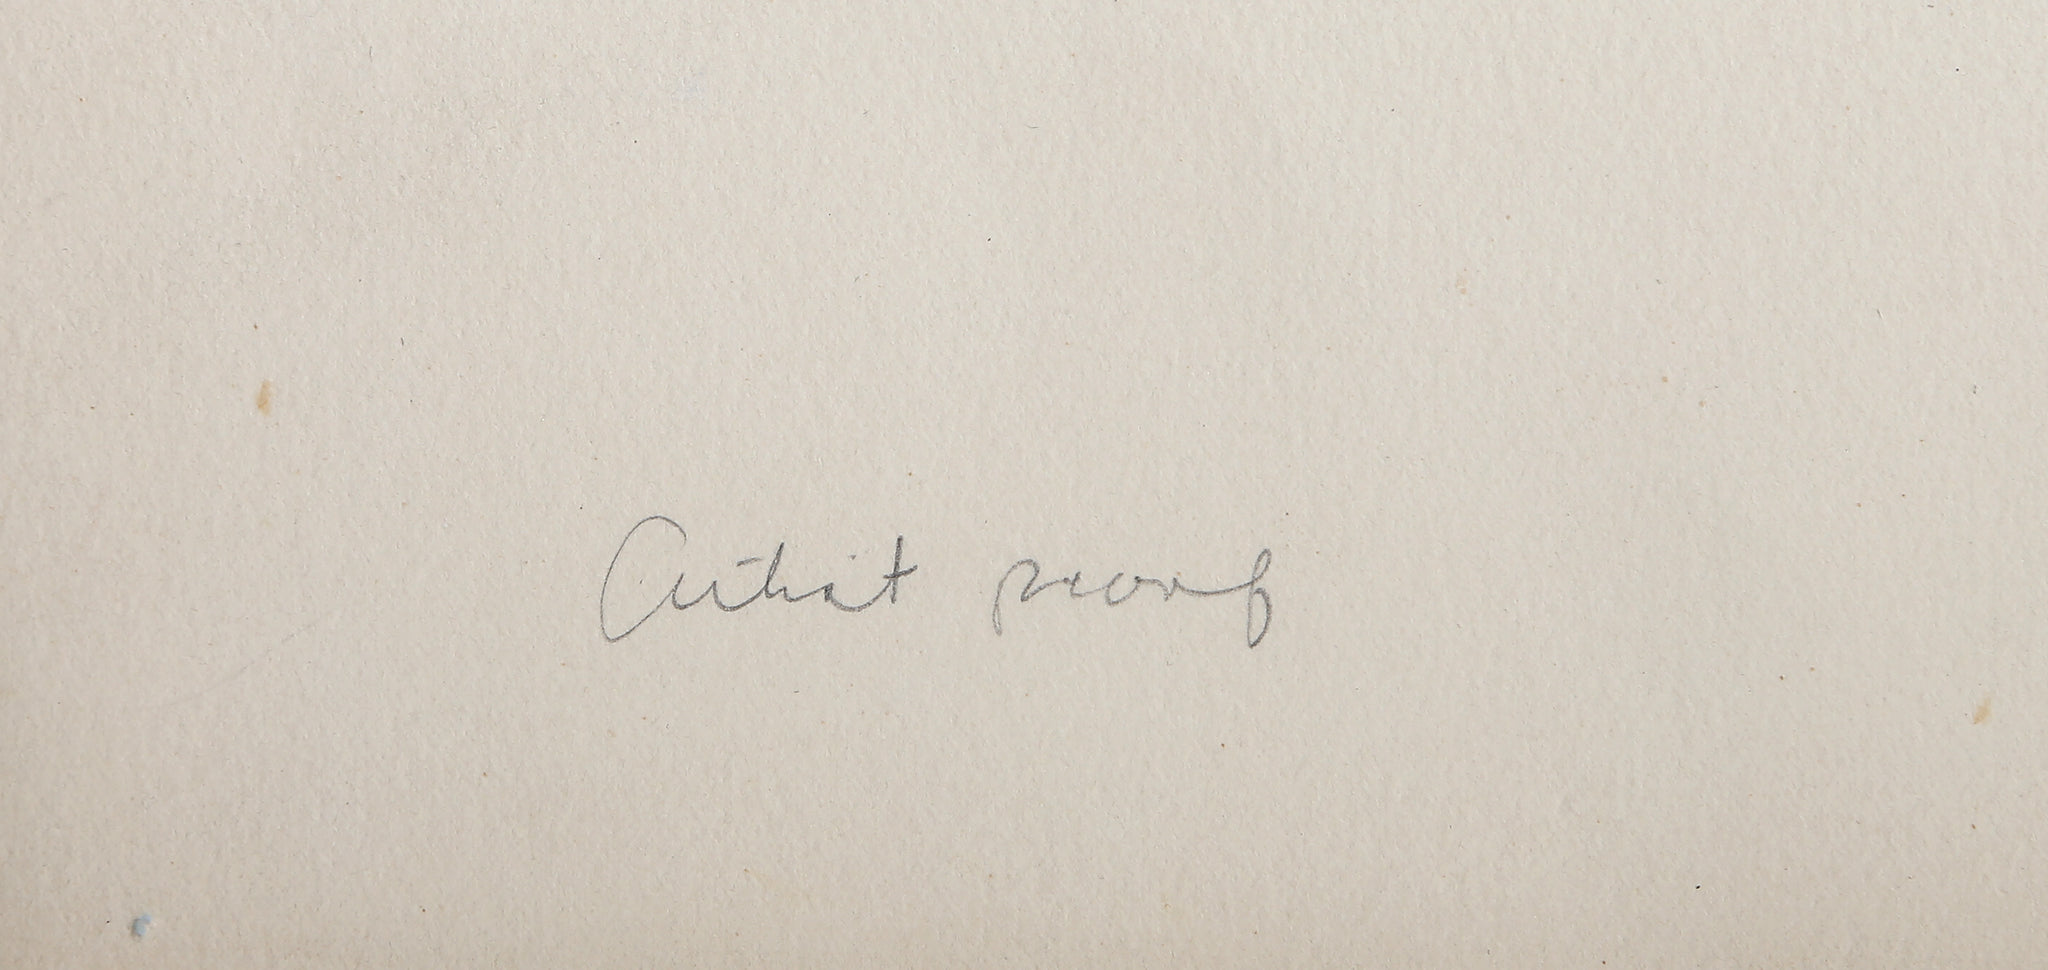 Artist proof